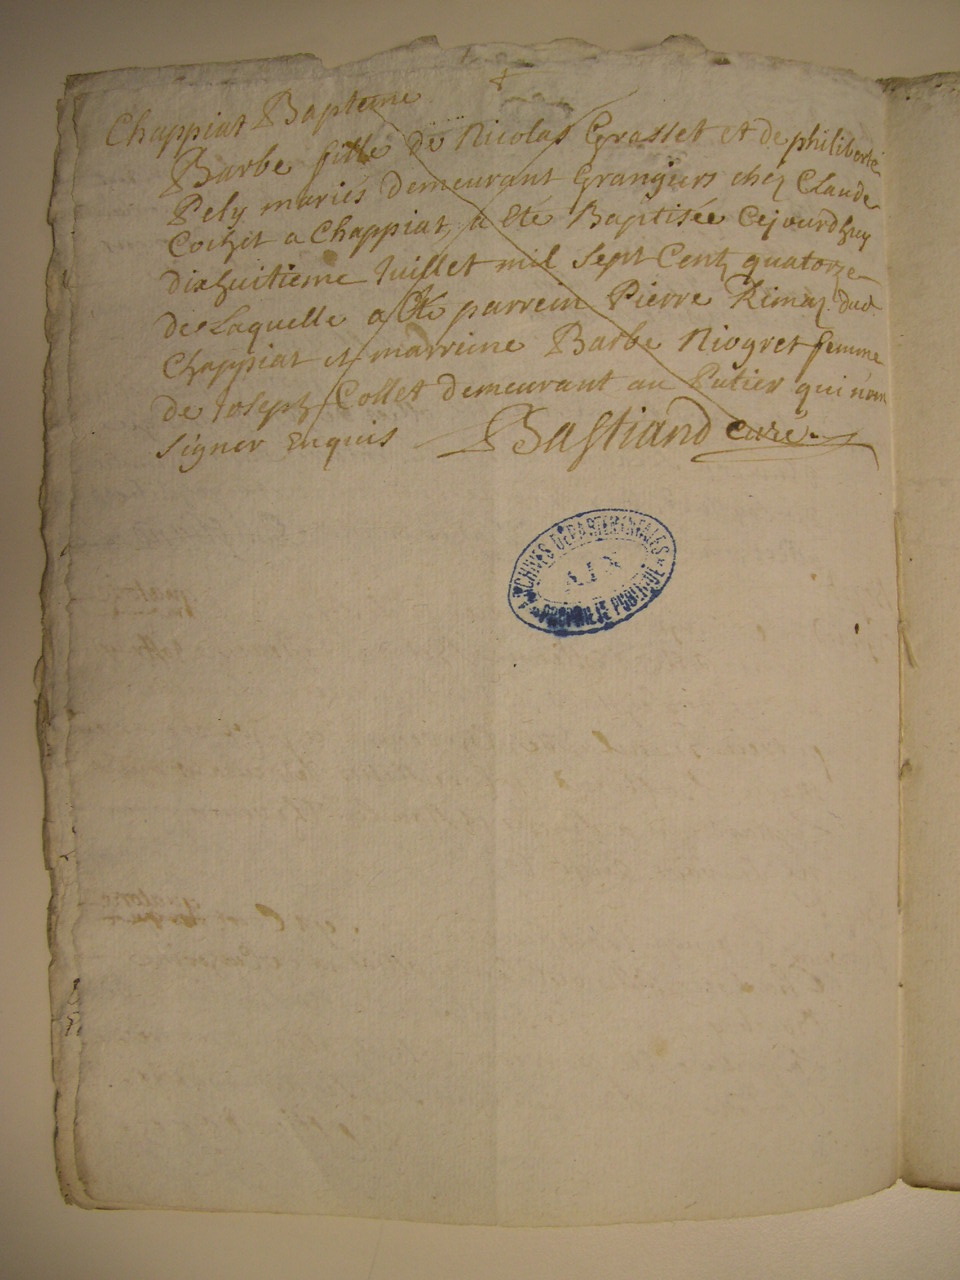 Chappiat Bapteme
Barbe fille de Nicolas Grasset et de philiberte
Pely mariés demeurant Grangiers chez Claude
Cochet a Chappiat, a été Baptisée Cejourdhuy
dixhuitieme Juillet mil sept Centz quatorze
de Laquelle a été parrein Pierre dud
Chappiat et marreine Barbe Niogret femme
de Joseph Collet demeurant au Putier qui n'ont
signer enquis Bastiand curé
ARCHIVES DEPARTEMENTALES
AIN
PROPRIETE PUBLIQUE